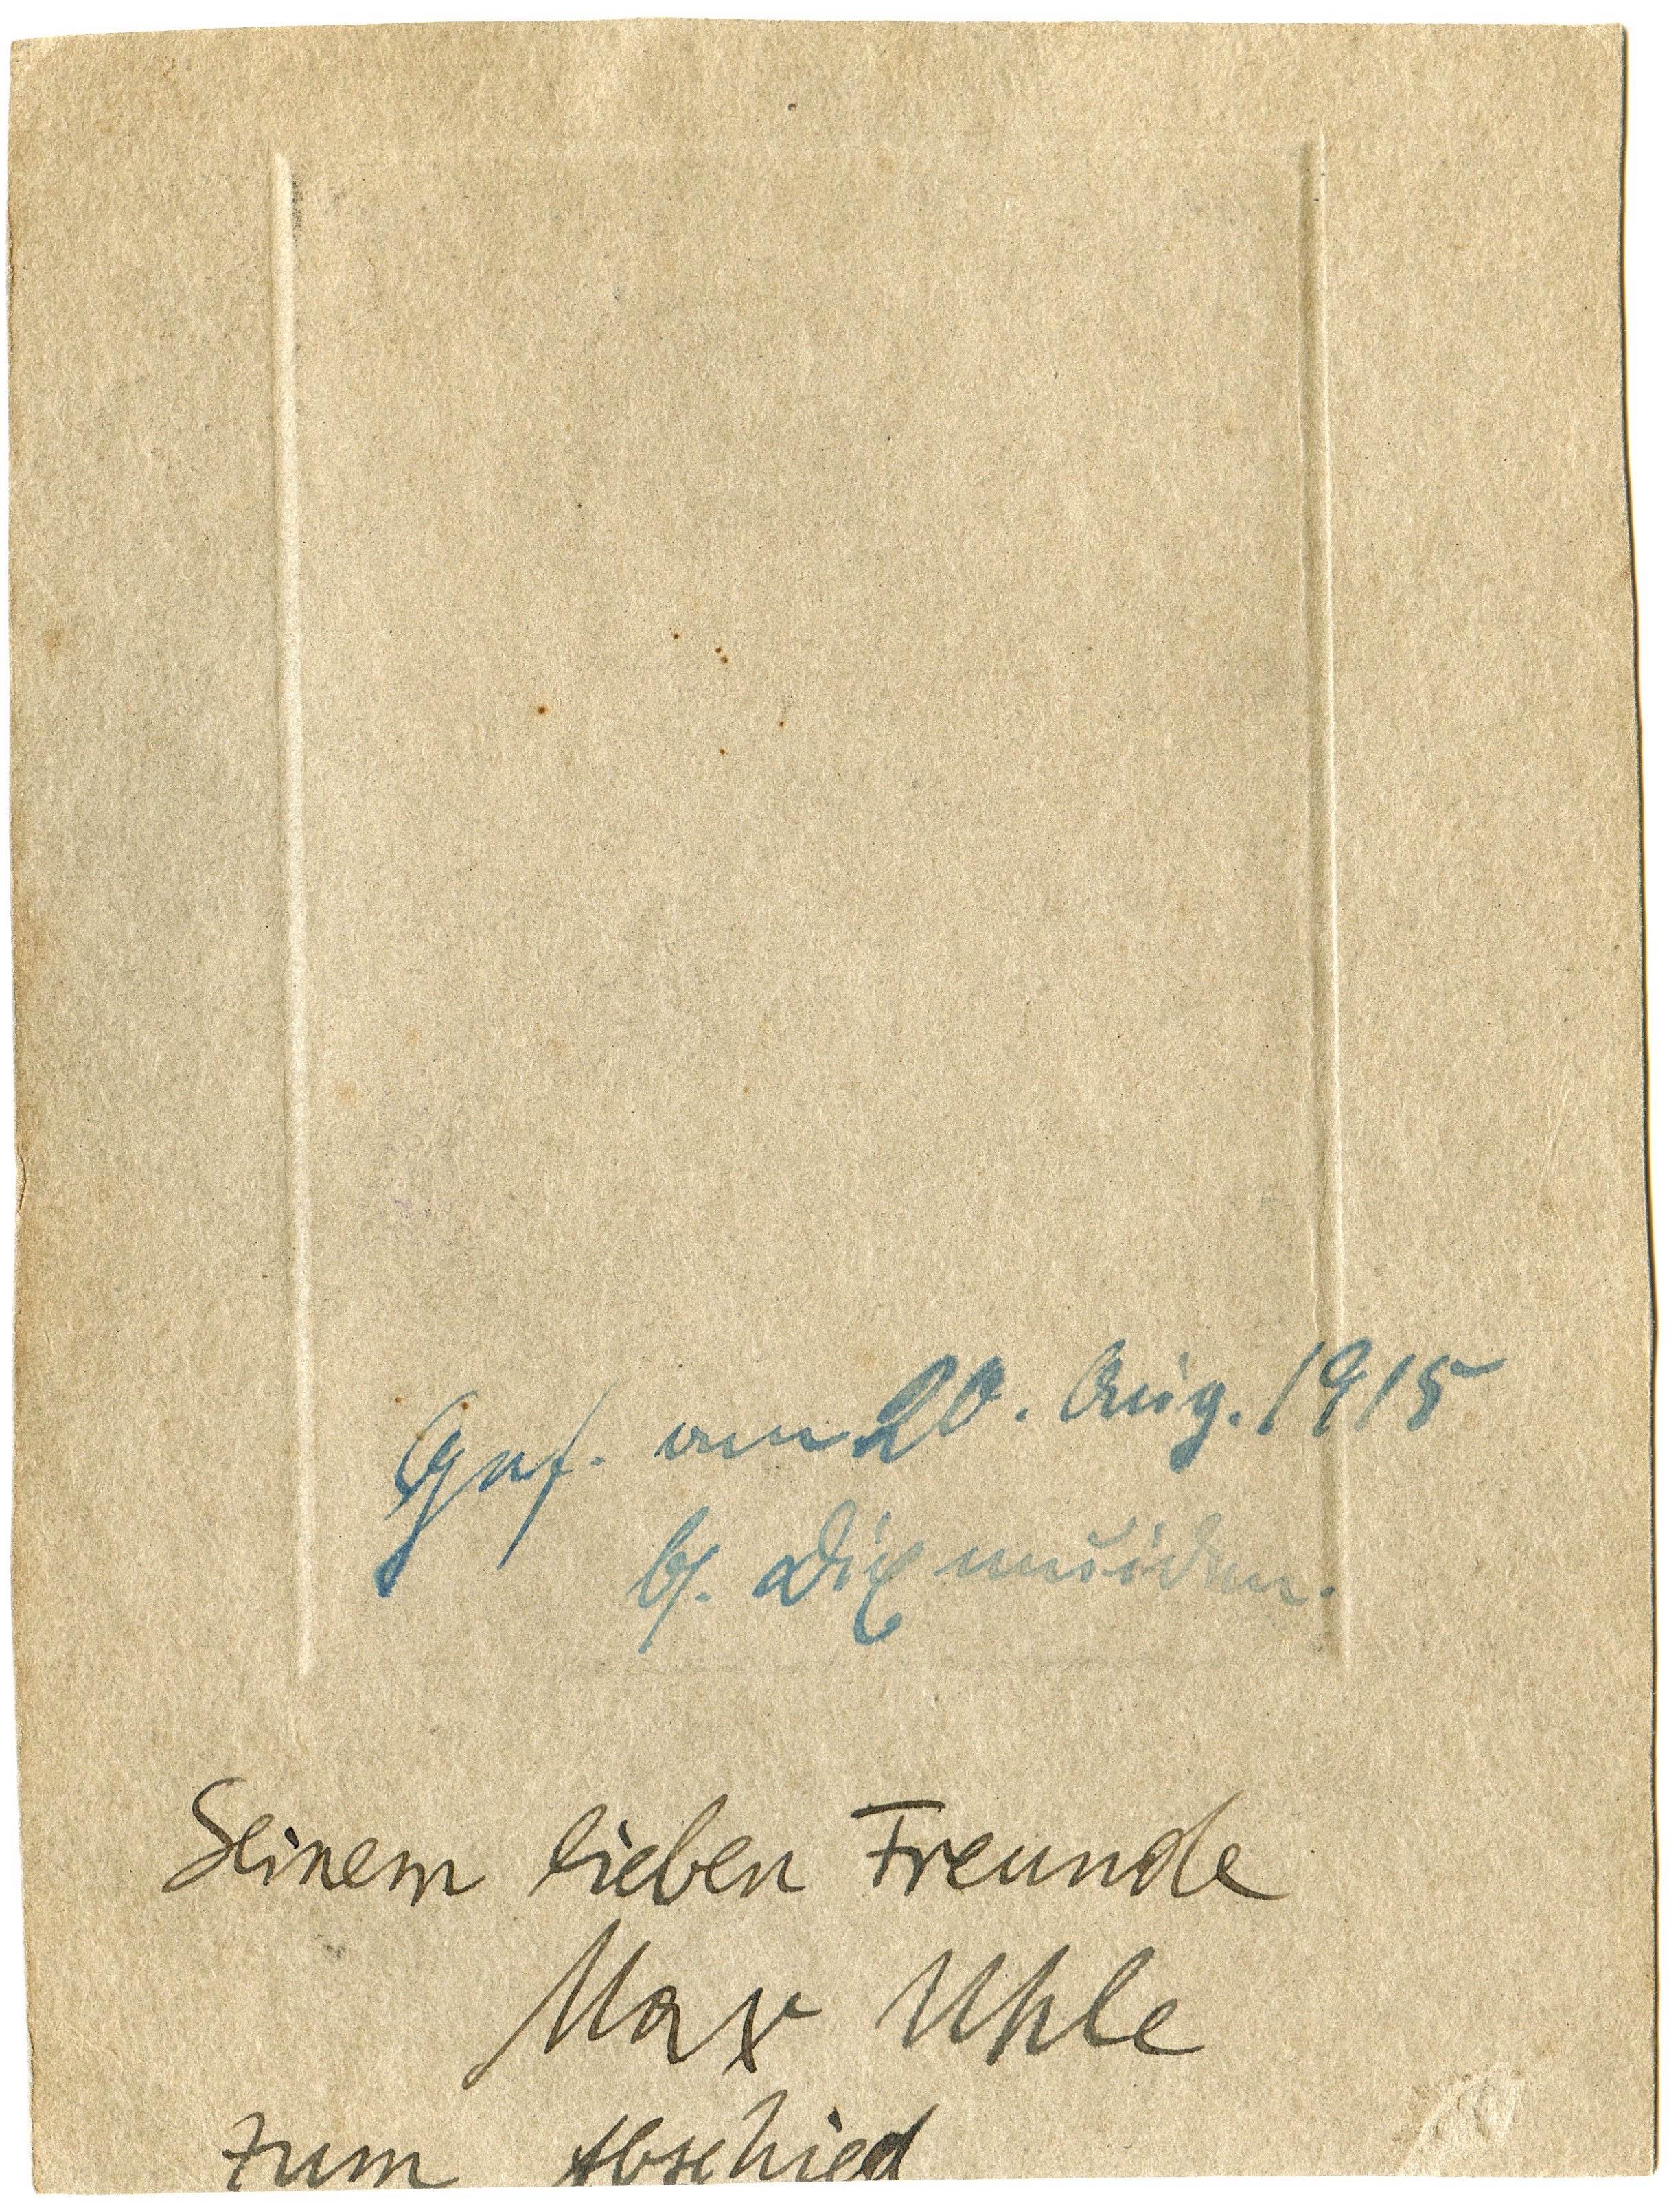 Gef. am 20. Aug. 1915
b. Dixmuiden.
Seinem lieben Freunde
Max Uhle
zum Abschied